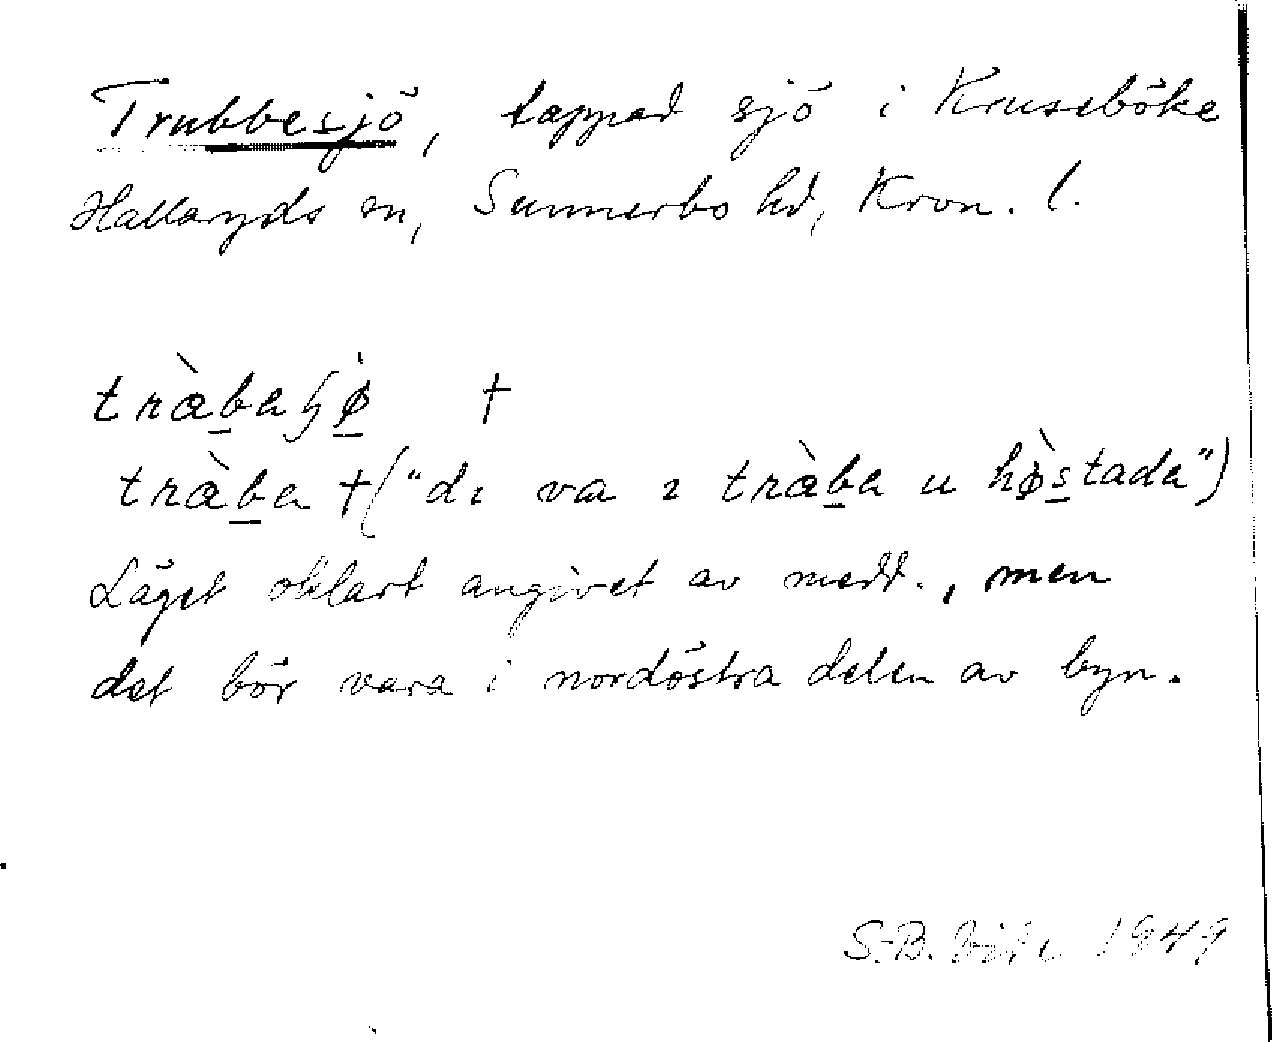 Trubbesjö, tappad sjö i Kruseböke
Hallaryds sn, Sunnerbo hd, Kron. l.
tràbaɧø̀ †
tràba † ("dɩ va ɩ tràba u hø̀stada")
Läget oklart angivet av medd., men
det bör vara i nordöstra delen av byn.
S.-B. 1949